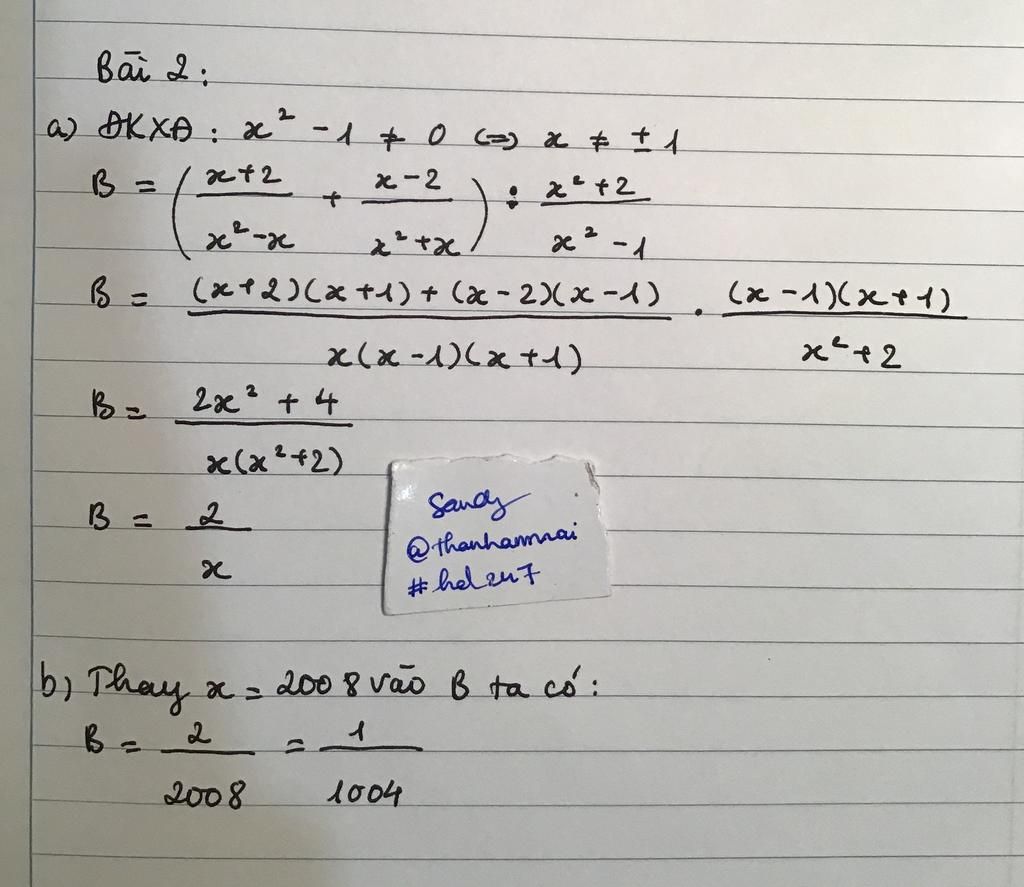 Bài 2:
a) ĐKXĐ: x² - 1 ≠ 0 <=> x ≠ ± 1
B = ( (x+2)/(x²-x) + (x-2)/(x²+x) ) : (x²+2)/(x²-1)
B = ((x+2)(x+1) + (x-2)(x-1))/(x(x-1)(x+1)) . ((x-1)(x+1))/(x²+2)
B = (2x² + 4)/(x(x²+2))
B = 2/x
Sandy
@thanhannnai
#hd247
b) Thay x = 2008 vào B ta có:
B = 2/2008 = 1/1004